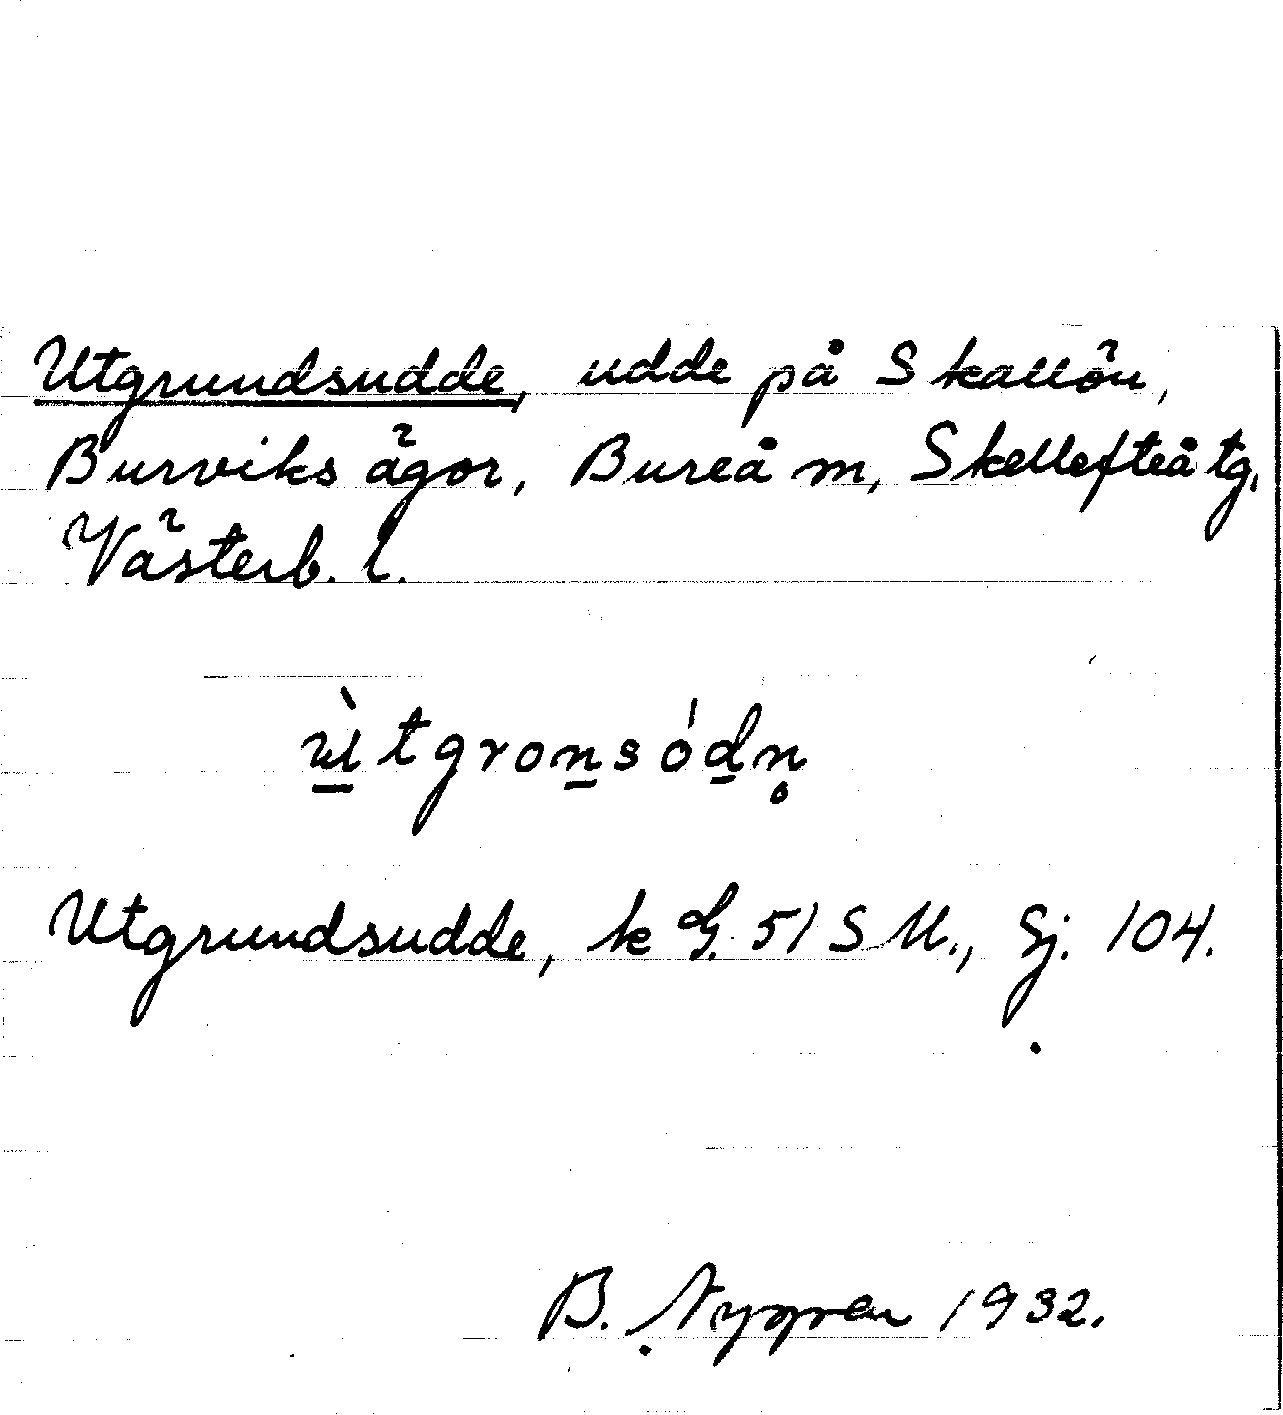 Utgrundsudde, udde på Skallön,
Burviks ägor, Bureå m, Skellefteå tg,
Västerb. l.
ùtgronsódn̥
Utgrundsudde, k G. 51 S M., Sj. 104.
B. Nygren 1932.